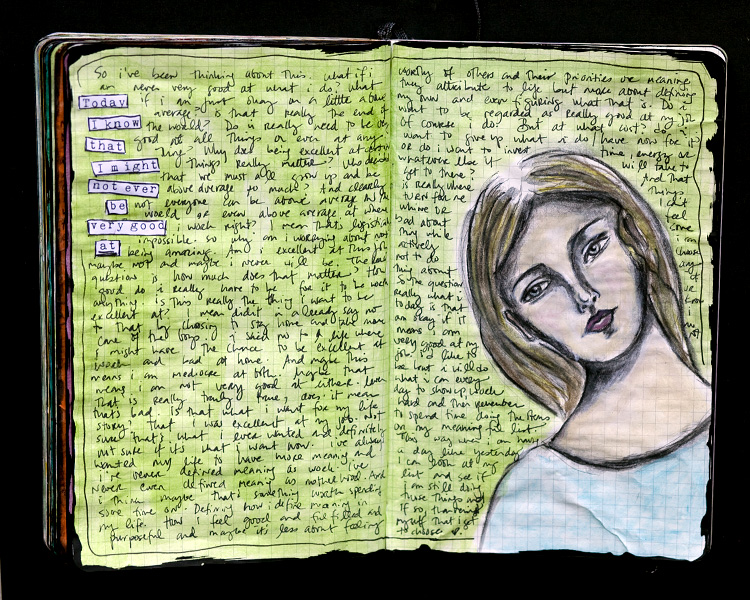 Today
I know
that
I might
not ever
be
very good
at
So i've been thinking about this. what if i
am never very good at what i do? what
if i am just okay or a little above
average? is that really the end of
the world? Do i really need to be very
good at all things or even at any
thing? Why does being excellent at
all things really matter? who decided
that we must all grow up and be
above average so much? And clearly
not everyone can be above average
world or even above average at where
i work right? I mean that's
impossible. so why am i worrying about not
being amazing. And i excellent at this job
maybe not and maybe i never will be. The real
question is how much does that matter? How
good do i really have to be for it to be work
anything is this really the thing i want to be
excellent at? i mean didn't i already say no
to that by choosing to stay home and take more
care of the boys. i said no to a life where
i might have the chance to be excellent at
work and bad at home. And maybe this
means i am mediocre at both. Maybe that
means i am not very good at either. Even
that is really truly true, does it mean
that's bad. is that what i want for my life
story? that i was excellent at my job. Not
sure that's what i ever wanted and definitely
not sure if it's what i want now. i've always
wanted my life to have more meaning and
i've never defined meaning as work. i've
never even defined meaning as motherhood. And
i think maybe that's something worth spending
some time on. Defining how i define meaning in
my life. How i feel good and fulfilled and
purposeful and maybe it's less about feeling
worthy of others and their priorities or meaning
they attribute to life but more about defining
my own and even figuring what that is. Do i
want to be regarded as really good at my job
of course i do. But at what cost? do i
want to give up what i do/have now for it
or do i want to invest time, energy or
whatever else it will take to
get to there? And that
is really where things
i don't
feel
come
i am
choose
not
bad about
they while
actively
not to do
thing about
so the question
really what i
today is that
am okay if it
means i am
very good at my
job. i'd like to
be but i will do
what i can every
day to show up, work
hard and then remember
to spend time doing the items
on my meaning full list.
This way when i am having
a day like yesterday
i can look at my
list and see if
i am still doing
those things and
if so, thanking
myself that i get
to choose ♥.